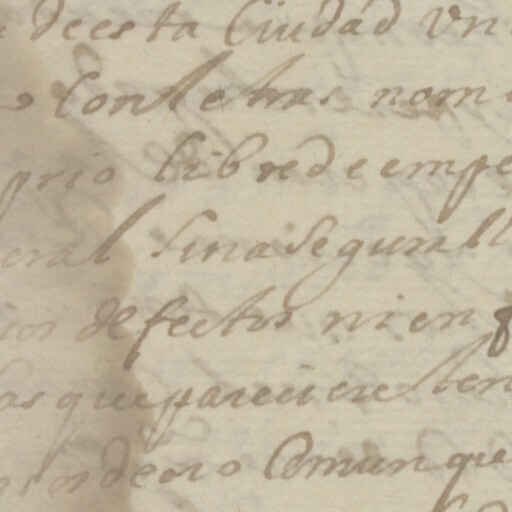 de esta Ciudad Un
Con letras nom
prio libre de empe
eral Sin asegurall
ios defectos ni en
as que pareciere ten
de oro Comun que